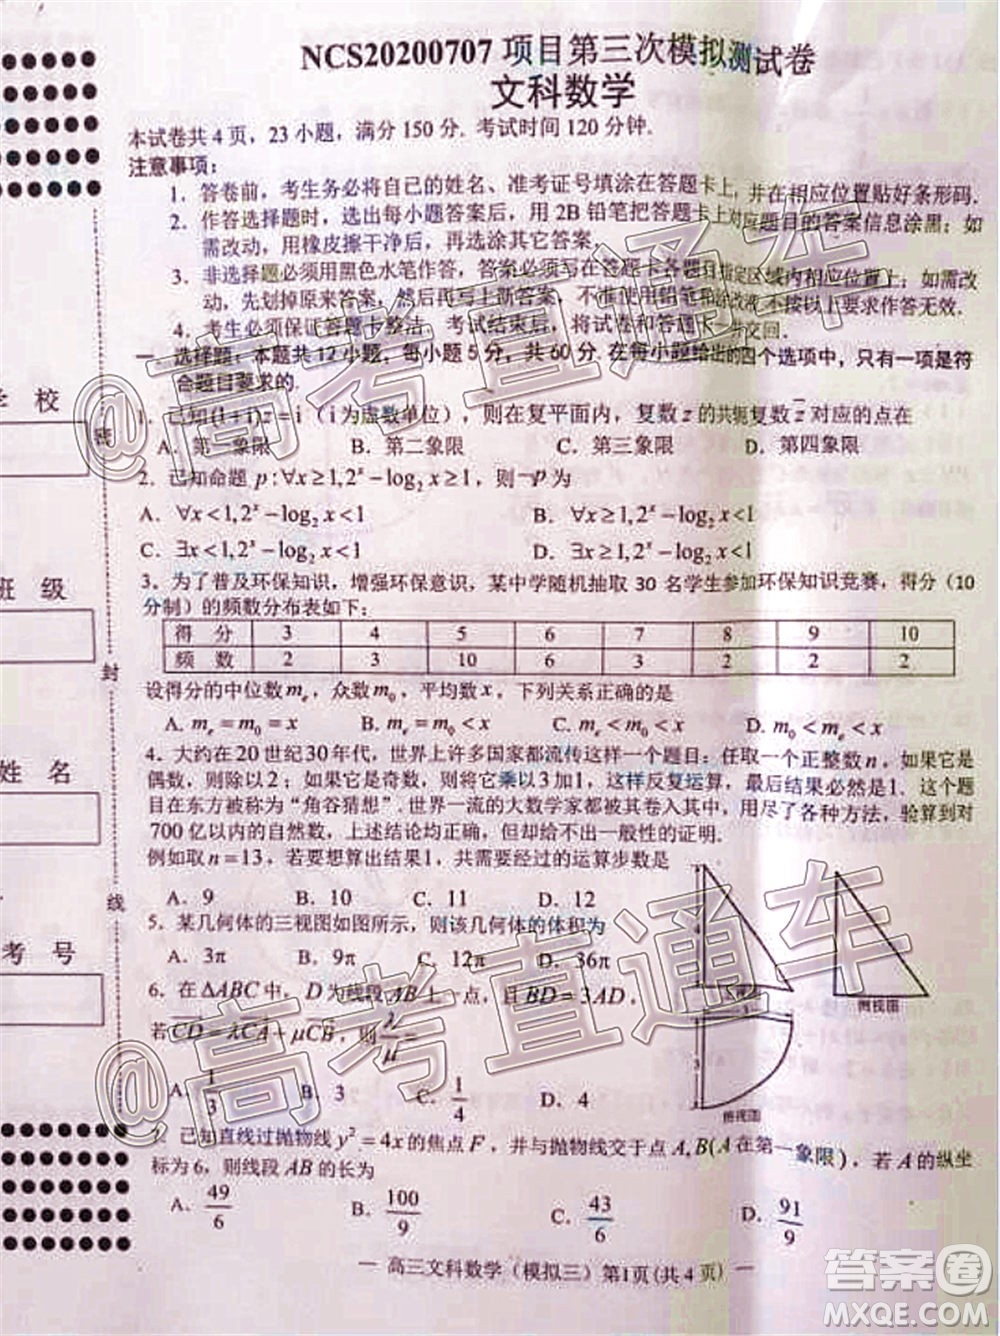 NCS20200707 项目第三次模拟测试卷
文科数学
本试卷共4页，23小题，满分150分．考试时间120分钟．
注意事项：
1．答卷前，考生务必将自己的姓名、准考证号填涂在答题卡上，并在相应位置贴好条形码．
2．作答选择题时，选出每小题答案后，用2B铅笔把答题卡上对应题目的答案信息涂黑；如
需改动，用橡皮擦干净后，再选涂其它答案．
3．非选择题必须用黑色水笔作答，答案必须写在答题卡各题目指定区域内相应位置上；如需
改动，先划掉原来答案，然后再写上新答案，不准使用铅笔和涂改液．不按以上要求作答无效．
4．考生必须保证答题卡整洁．考试结束后，将试卷和答题卡一并交回．
一．选择题：本题共12小题，每小题5分，共60分．在每小题给出的四个选项中，只有一项是符
合题目要求的．
学 校
密
1．已知(1+i)z=i（i为虚数单位），则在复平面内，复数z的共轭复数z̄对应的点在
A．第一象限 B．第二象限 C．第三象限 D．第四象限
2．已知命题 p:∀x≥1,2ˣ−log₂x≥1，则¬p为
A．∀x<1,2ˣ−log₂x<1 B．∀x≥1,2ˣ−log₂x<1
C．∃x<1,2ˣ−log₂x<1 D．∃x≥1,2ˣ−log₂x<1
班 级
3．为了普及环保知识，增强环保意识，某中学随机抽取30名学生参加环保知识竞赛，得分（10
分制）的频数分布表如下：
得 分 3 4 5 6 7 8 9 10
频 数 2 3 10 6 3 2 2 2
封
设得分的中位数mₑ，众数m₀，平均数x，下列关系正确的是
A. mₑ=m₀=x B. mₑ=m₀<x C. mₑ<m₀<x D. m₀<mₑ<x
姓 名
4．大约在20世纪30年代，世界上许多国家都流传这样一个题目：任取一个正整数n，如果它是
偶数，则除以2；如果它是奇数，则将它乘以3加1，这样反复运算，最后结果必然是1．这个题
目在东方被称为“角谷猜想”．世界一流的大数学家都被其卷入其中，用尽了各种方法，验算到
700亿以内的自然数，上述结论均正确，但却给不出一般性的证明．
例如取n=13，若要想算出结果1，共需要经过的运算步数是
A．9 B．10 C．11 D．12
线
5．某几何体的三视图如图所示，则该几何体的体积为
A．3π B．6π C．12π D．36π
考 号
6．在△ABC中，D为线段AB上一点，且BD=3AD，
若CD=λCA+μCB，则λ/μ=
A．1/3 B．3 C．1/4 D．4
侧视图
俯视图
7．已知直线过抛物线y²=4x的焦点F，并与抛物线交于点A,B(A在第一象限)，若A的纵坐
标为6，则线段AB的长为
A．49/6 B．100/9 C．43/6 D．91/9
— 高三文科数学（模拟三）第1页(共4页) —
@高考直通车
@高考直通车
答案圈
MXQE.COM